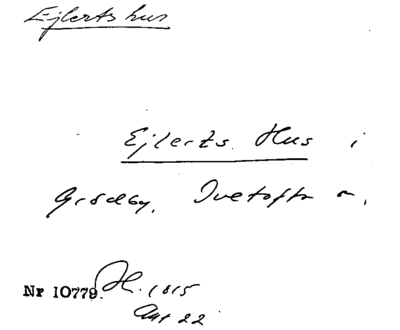 Ejlertshus
Ejlerts Hus i
Grödby, Ivetofta
Nr 10779. H. 1815
Akt 22